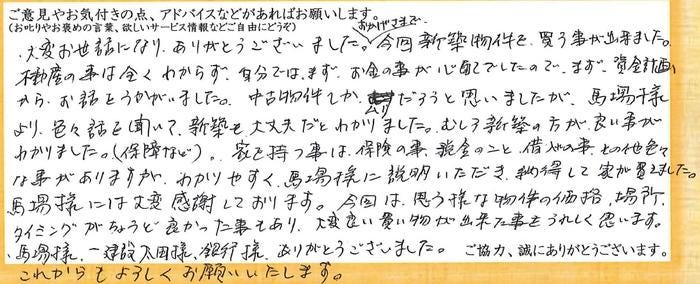 ご意見やお気付きの点、アドバイスなどがあればお願いします。
(お叱りやお褒めの言葉、欲しいサービス情報などご自由にどうぞ)
おかげさまで
・大変お世話になり、ありがとうございました。今回新築物件を、買う事が出来ました。
不動産の事は全くわからず、自分では、まず、お金の事が心配でしたので、まず、資金計画
から、お話をうかがいました。中古物件しかムリだろうと思いましたが、馬場様
より、色々話を聞いて、新築も大丈夫だとわかりました。むしろ新築の方が良い事が
わかりました。(保障など)。家を持つ事は、保険の事、税金のこと、借入の事、その他色々
な事がありますが、わかりやすく、馬場様に説明いただき、納得して家が買えました。
馬場様には大変感謝しております。今回は、思う様な物件の価格、場所、
タイミングがちょうど良かった事もあり、大変良い買い物が出来た事をうれしく思います。
・馬場様、一建設太田様、銀行様、ありがとうございました。 ご協力、誠にありがとうございます。
これからもよろしくお願いいたします。